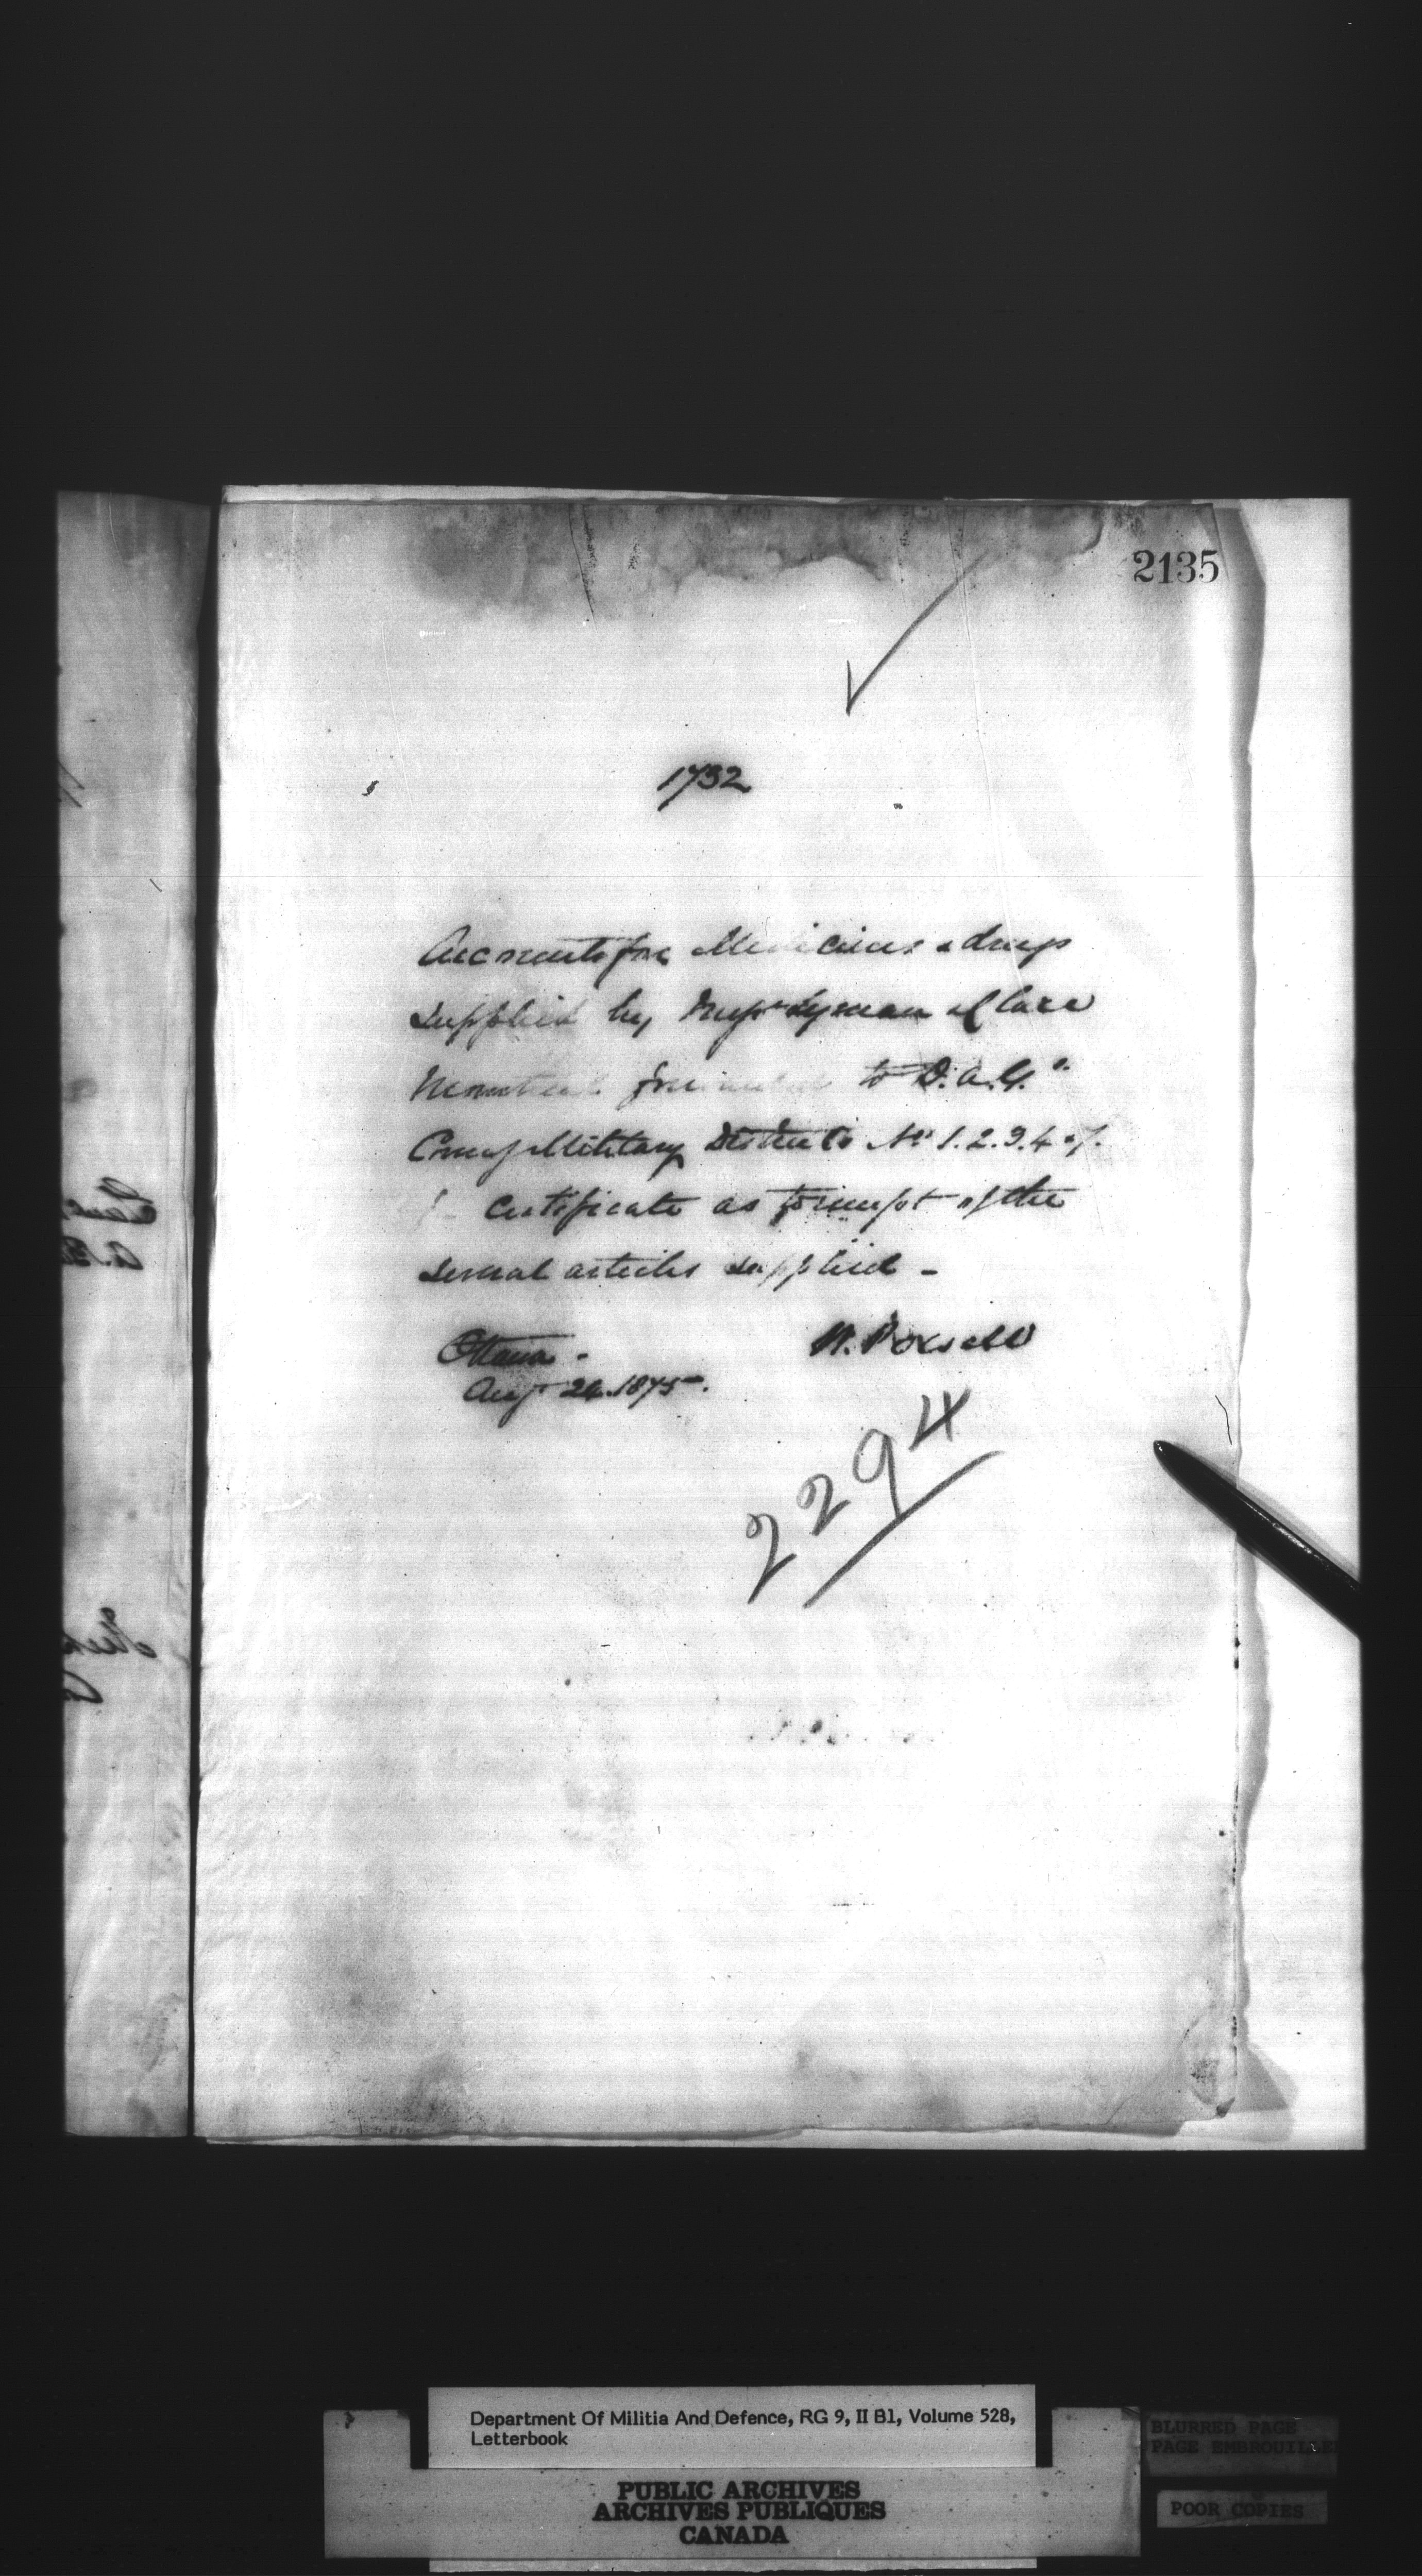 2135
1732
Accounts for Medicines & drugs
supplied by Messrs Lyman Clare
Montreal forwarded to D.A.G.s
Comg Military Districts Nos 1.2.3.4 & 7.
Certificate as to receipt of the
several articles supplied -
Ottawa - W. Powell
Augt 24. 1875.
2294
Department Of Militia And Defence, RG 9, II B1, Volume 528,
Letterbook
PUBLIC ARCHIVES
ARCHIVES PUBLIQUES
CANADA
BLURRED PAGE
PAGE EMBROUILLE
POOR COPIES